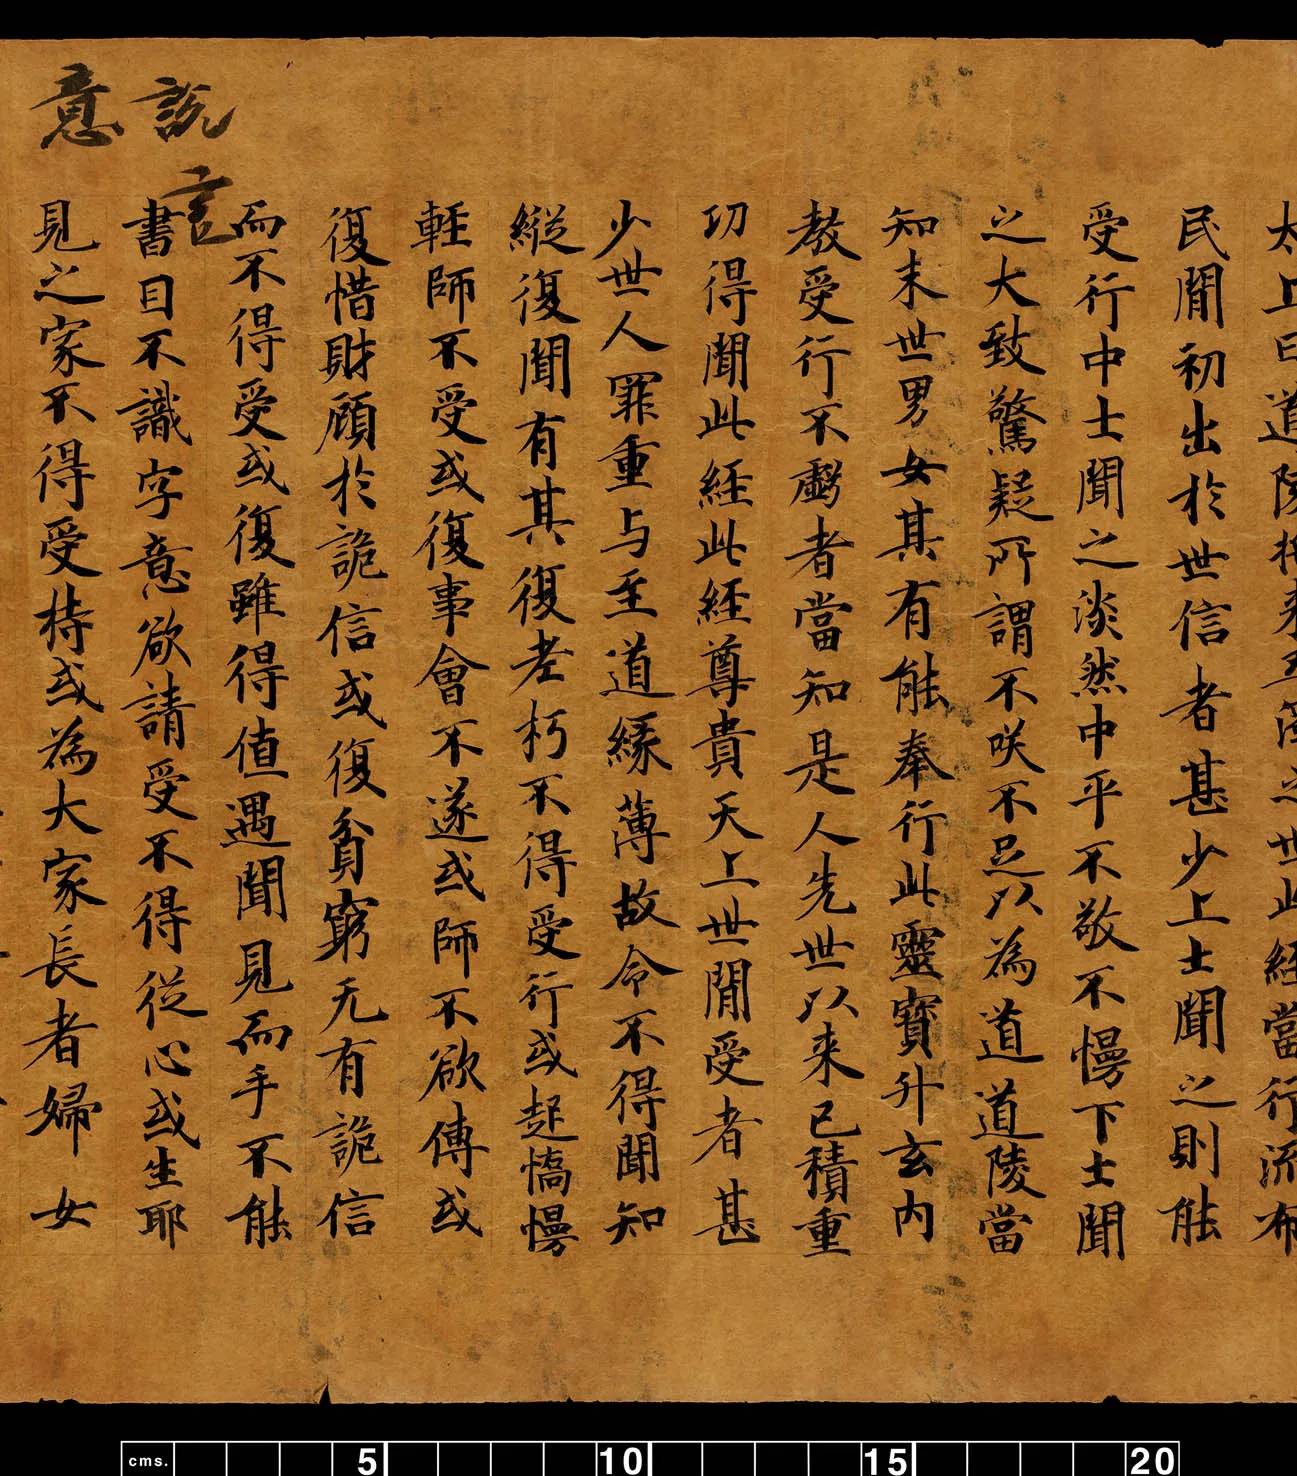 太上曰道陵将来五濁之世此経當行流布
民間初出於世信者甚少上士聞之則能
受行中士聞之淡然中平不敬不慢下士聞
之大致驚疑所謂不咲不足以為道道陵當
知末世男女其有能奉行此靈寶升玄内
教受行不虧者當知是人先世以来已積重
功得聞此経此経尊貴天上世間受者甚
少世人罪重与至道縁薄故令不得聞知
縦復聞有其復老朽不得受行或起憍慢
軽師不受或復事會不遂或師不欲傳或
復惜財顧於詭信或復貧窮无有詭信
而不得受或復雖得值遇聞見而手不能
書目不識字意欲請受不得従心或生耶
見之家不得受持或為大家長者婦女
説言
意
cms. 5 10 15 20